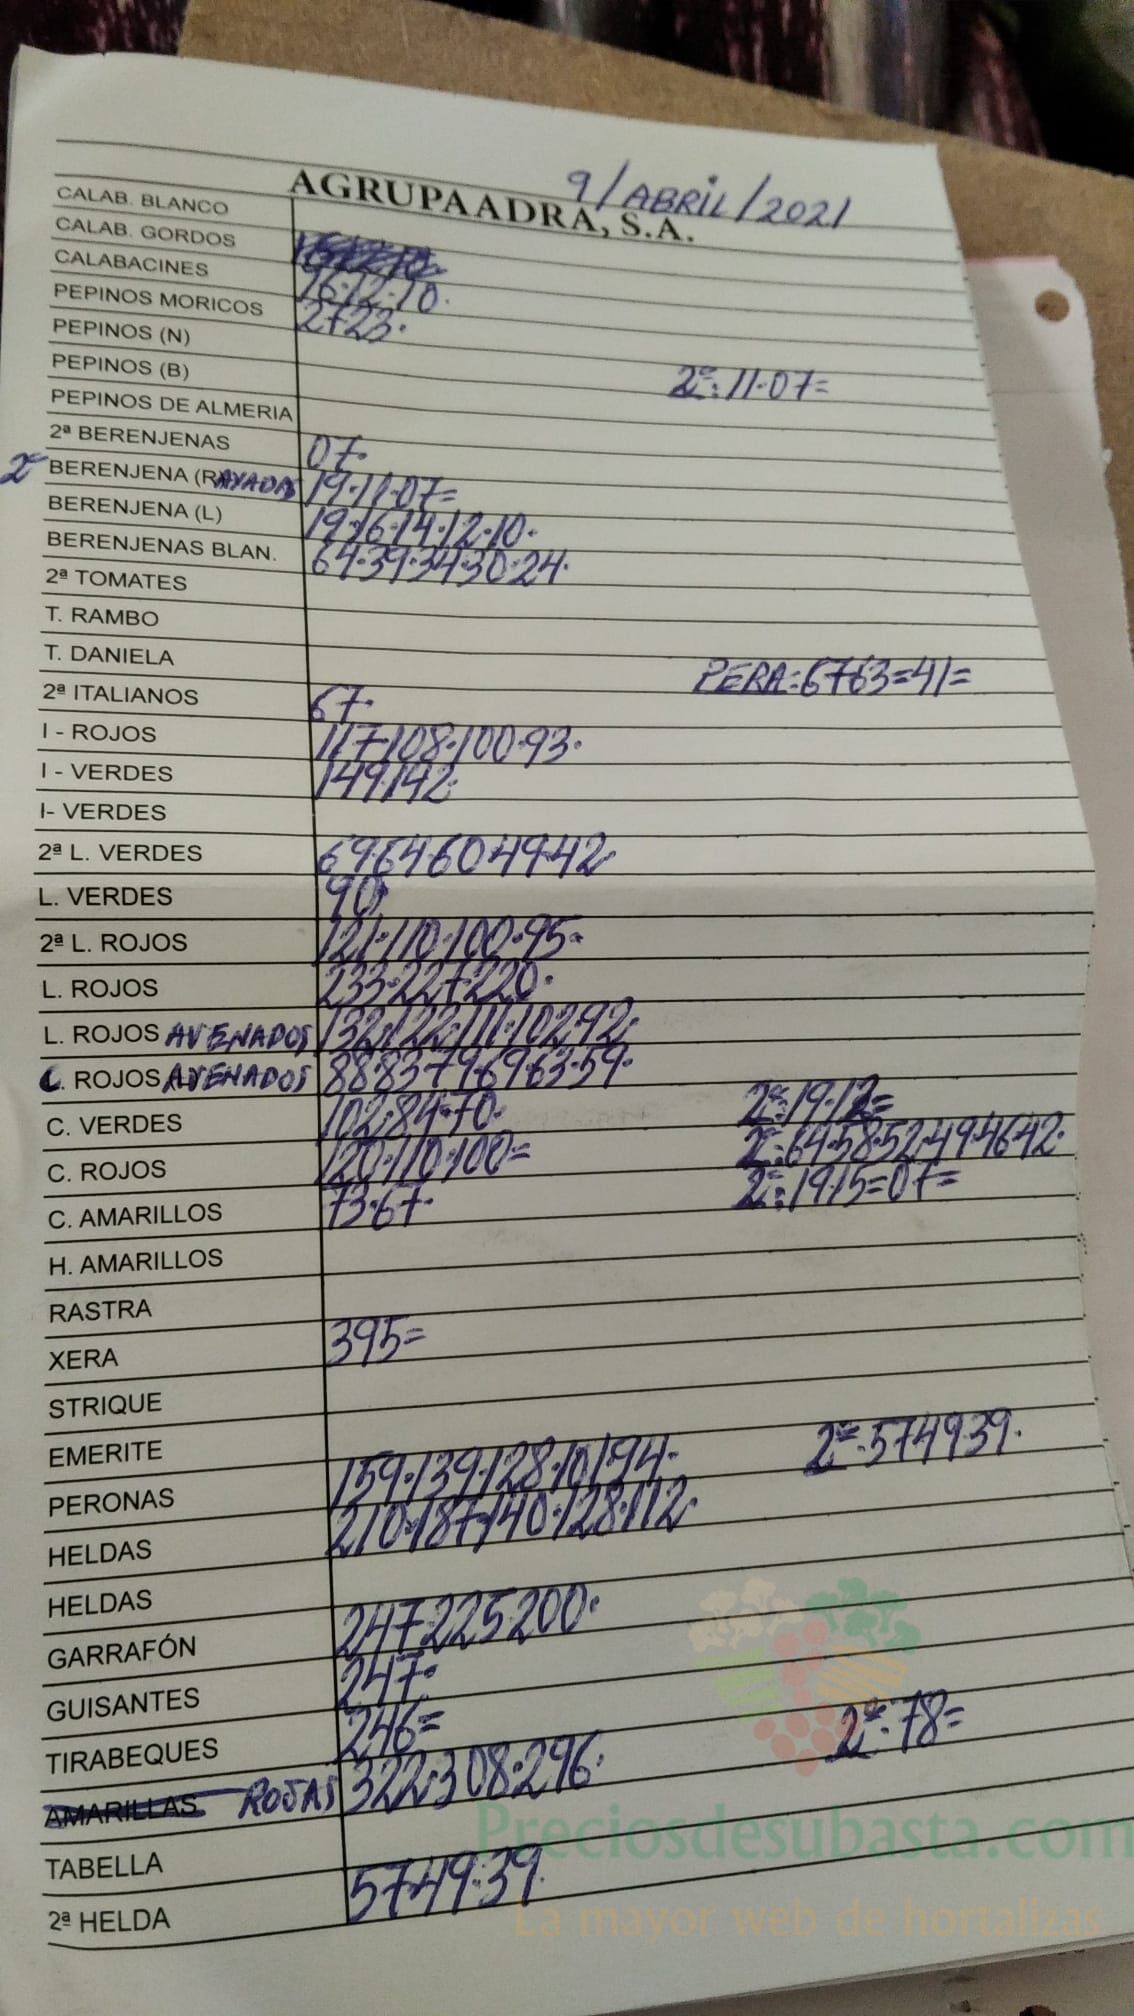 9/ABRIL/2021
AGRUPAADRA, S.A.
CALAB. BLANCO
CALAB. GORDOS
CALABACINES 16·12·10·
PEPINOS MORICOS 27·23·
PEPINOS (N)
PEPINOS (B) 2ª:11·07=
PEPINOS DE ALMERIA
2ª BERENJENAS 07·
2ª BERENJENA (RAYADAS 19·11·07=
BERENJENA (L) 19·16·14·12·10·
BERENJENAS BLAN. 64·39·34·30·24·
2ª TOMATES
T. RAMBO
T. DANIELA PERA=67·63=41=
2ª ITALIANOS 67·
I - ROJOS 117·108·100·93·
I - VERDES 149·142·
I- VERDES
2ª L. VERDES 69·64·60·49·42·
L. VERDES 90·
2ª L. ROJOS 121·110·100·95·
L. ROJOS 233·227·220·
L. ROJOS AVENADOS 132·122·111·102·92·
C. ROJOS AVENADOS 88·83·79·69·63·59·
C. VERDES 102·84·70· 2ª:19·12=
C. ROJOS 120·110·100= 2ª:64·58·52·49·46·42·
C. AMARILLOS 73·67· 2ª:19·15=07=
H. AMARILLOS
RASTRA
XERA 395=
STRIQUE
EMERITE 2ª·57·49·39·
PERONAS 159·139·128·101·94·
HELDAS 210·187·140·128·112·
HELDAS
GARRAFÓN 247·225·200·
GUISANTES 247·
TIRABEQUES 246= 2ª·78=
AMARILLAS ROJAS 322·308·296·
Preciosdesubasta.com
TABELLA
2ª HELDA 57·49·39·
La mayor web de hortalizas